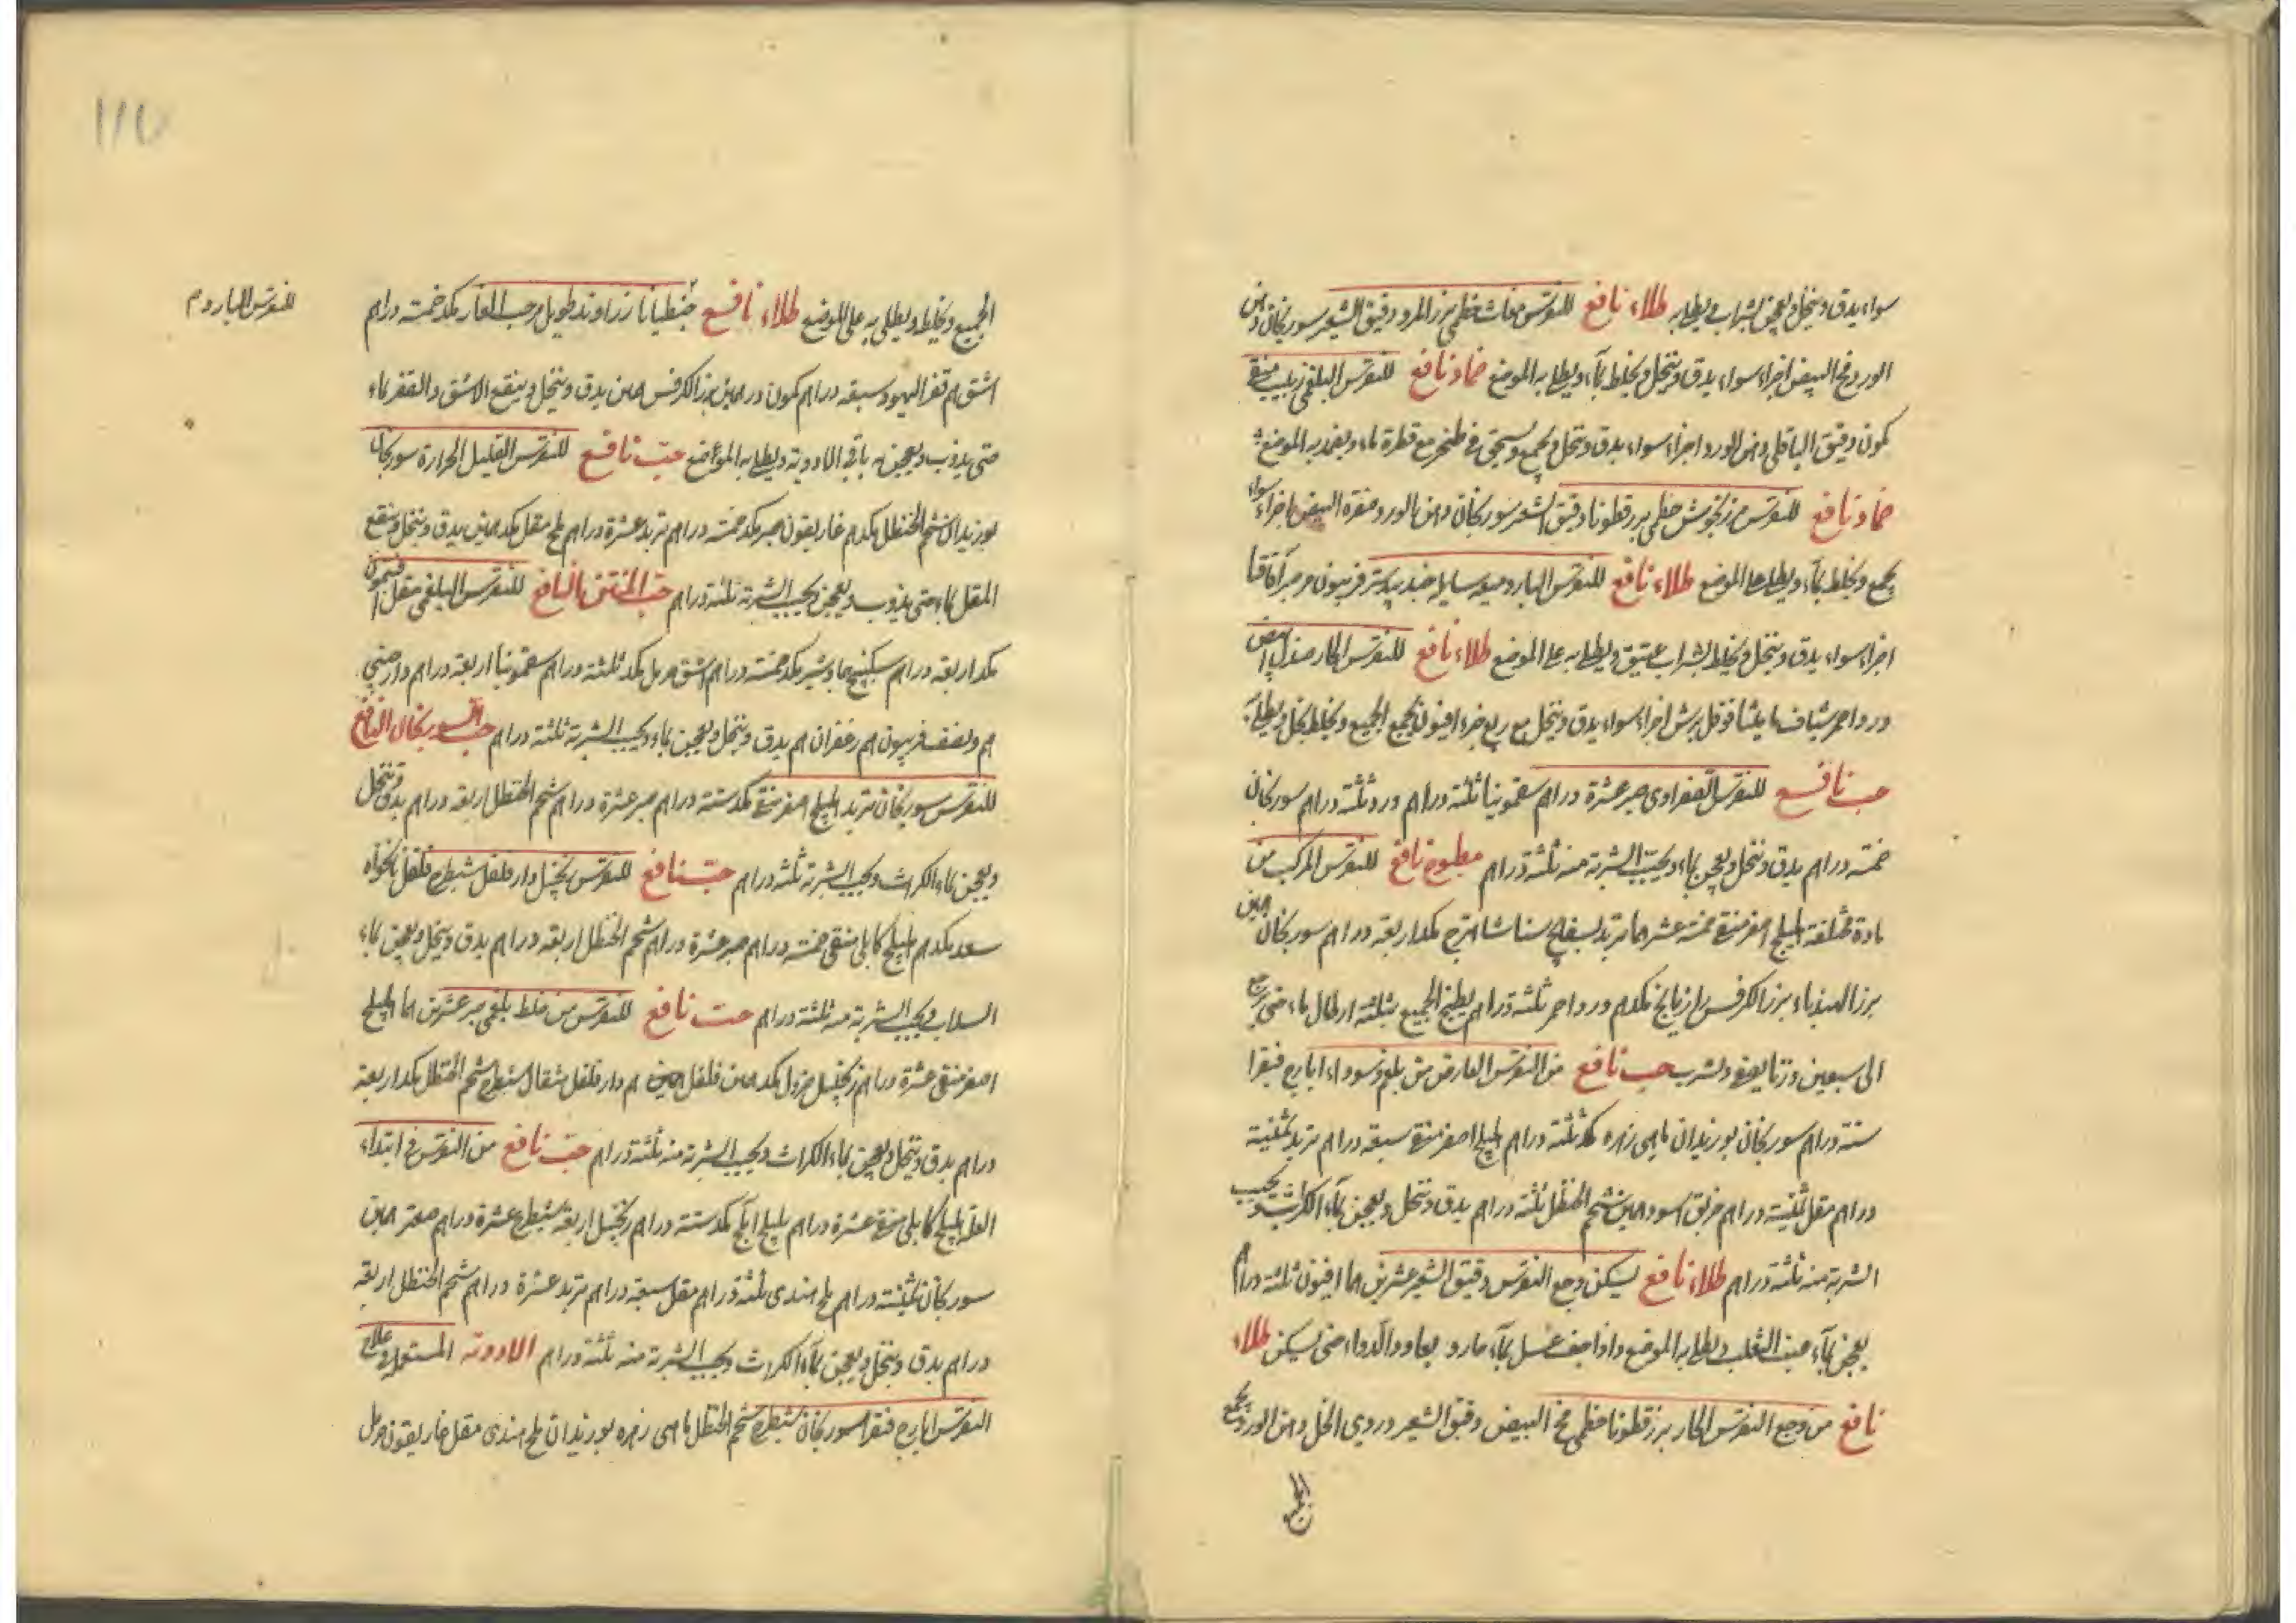 سواء يدق وينخل ويعجن بشراب ويطلى به طلاء نافع للنقرس مغاث خطمى بزر المرو دقيق الشعير سورنجان دهن
الورد مخ البيض اجزاء سواء يدق وينخل ويخلط بماء ويطلى به الموضع ضماد نافع للنقرس البلغمى زبيب منقى
كمون دقيق الباقلى دهن الورد اجزاء سواء يدق وينخل ويجمع ويسحق فى طنجير مع قطرة ماء ويضمد به الموضع
ضماد نافع للنقرس مرزنجوش خطمى بزر قطونا دقيق الشعير سورنجان دهن الورد صفرة البيض اجزاء سواء
يجمع ويخلط بماء ويطلى على الموضع طلاء نافع للنقرس البارد ميعه سايله جندبيدستر فربيون مر صبر اقاقيا
اجزاء سواء يدق وينخل ويخلط بشراب عتيق ويطلى به على الموضع طلاء نافع للنقرس الحار صندل ابيض
ورد احمر شياف ماميثا فوفل اجزاء سواء يدق وينخل مع ربع جزء افيون يجمع الجميع ويخلط بخل ويطلى به
حب نافع للنقرس الصفراوى صبر عشرة دراهم سقمونيا ثلثة دراهم ورد ثلثة دراهم سورنجان
خمسة دراهم يدق وينخل ويعجن بماء ويحبب الشربة منه ثلثة دراهم مطبوخ نافع للنقرس المركب من
مادة مختلفة هليلج اصفر منقى خمسة عشر هما تربد بسفايج سنا شاهترج مكد اربعة دراهم سورنجان همين
بزر الهندباء بزر الكرفس رازيانج مكدهم ورد احمر ثلثة دراهم يطبخ الجميع بثلثة ارطال ماء حتى يرجع
الى سبعين وزنا يصفى ويشرب حب نافع من النقرس العارض من بلغم وسوداء ايارج فيقرا
ستة دراهم سورنجان بوزيدان ماهى زهره مكد ثلثة دراهم هليلج اصفر منقى سبعة دراهم تربد ثمنية
دراهم مقل ثمنية دراهم خربق اسود همين شحم الحنظل ثلثة دراهم يدق وينخل ويعجن بماء الكراث ويحبب
الشربة منه ثلثة دراهم طلاء نافع ليسكن وجع النقرس دقيق الشعير عشرين هما افيون ثلثة دراهم
يعجن بماء عنب الثعلب ويطلى به الموضع واذا جف غسل بماء حار ويعاود الدواء حتى يسكن طلاء
نافع من وجع النقرس الحار بزر قطونا خطمى مخ البيض دقيق الشعير دردى الخل دهن الورد يجمع
الجميع
للنقرس البارد م
الجميع ويخلط ويطلى به على الموضع طلاء نافع جنطيانا زراوند طويل حب الغار مكد خمسة دراهم
اشق هم قفر اليهود سبعة دراهم كمون درهمين بزر الكرفس همين يدق وينخل وينقع الاشق والقفر بماء
حتى يذوب ويعجن به باقى الادوية ويطلى به المواضع حب نافع للنقرس القليل الحرارة سورنجان
بوزيدان شحم الحنظل مكدهم غاريقون صبر مكد خمسة دراهم تربد عشرة دراهم ملح مقل مكد همين يدق وينخل وينقع
المقل بماء حتى يذوب ويعجن ويحبب الشربة ثلثة دراهم حب المنتن النافع للنقرس البلغمى مقل افتيمون
مكد اربعة دراهم سكبينج جاوشير مكد خمسة دراهم اشق حرمل مكد ثلثة دراهم سقمونيا اربعة دراهم دارصينى
هم ونصف فربيون هم زعفران هم يدق وينخل ويعجن بماء ويحبب الشربة ثلثة دراهم حب السورنجان النافع
للنقرس سورنجان تربد هليلج اصفر منقى مكد ستة دراهم صبر عشرة دراهم شحم الحنظل اربعة دراهم يدق وينخل
ويعجن بماء الكراث ويحبب الشربة ثلثة دراهم حب نافع للنقرس زنجبيل دار فلفل شيطرج فلفل نانخواه
سعد مكدهم هليلج كابلى منقى خمسة دراهم صبر عشرة دراهم شحم الحنظل اربعة دراهم يدق وينخل ويعجن بماء
السداب ويحبب الشربة منه ثلثة دراهم حب نافع للنقرس من خلط بلغمى صبر عشرين هما هليلج
اصفر منقى عشرة دراهم زنجبيل خردل مكد همين فلفل هم دار فلفل مثقال شيطرج شحم الحنظل مكد اربعة
دراهم يدق وينخل ويعجن بماء الكراث ويحبب الشربة منه ثلثة دراهم حب نافع من النقرس فى ابتداء
العلة هليلج كابلى منقى عشرة دراهم بليلج املج مكد ستة دراهم زنجبيل اربعة شيطرج عشرة دراهم صعتر همين
سورنجان ثمنية دراهم ملح هندى ثلثة دراهم مقل سبعة دراهم تربد عشرة دراهم شحم الحنظل اربعة
دراهم يدق وينخل ويعجن بماء الكراث ويحبب الشربة منه ثلثة دراهم الادوية المستعملة فى علاج
النقرس ايارج فيقرا سورنجان شيطرج شحم الحنظل ماهى زهره بوزيدان ملح هندى مقل غاريقون حرمل